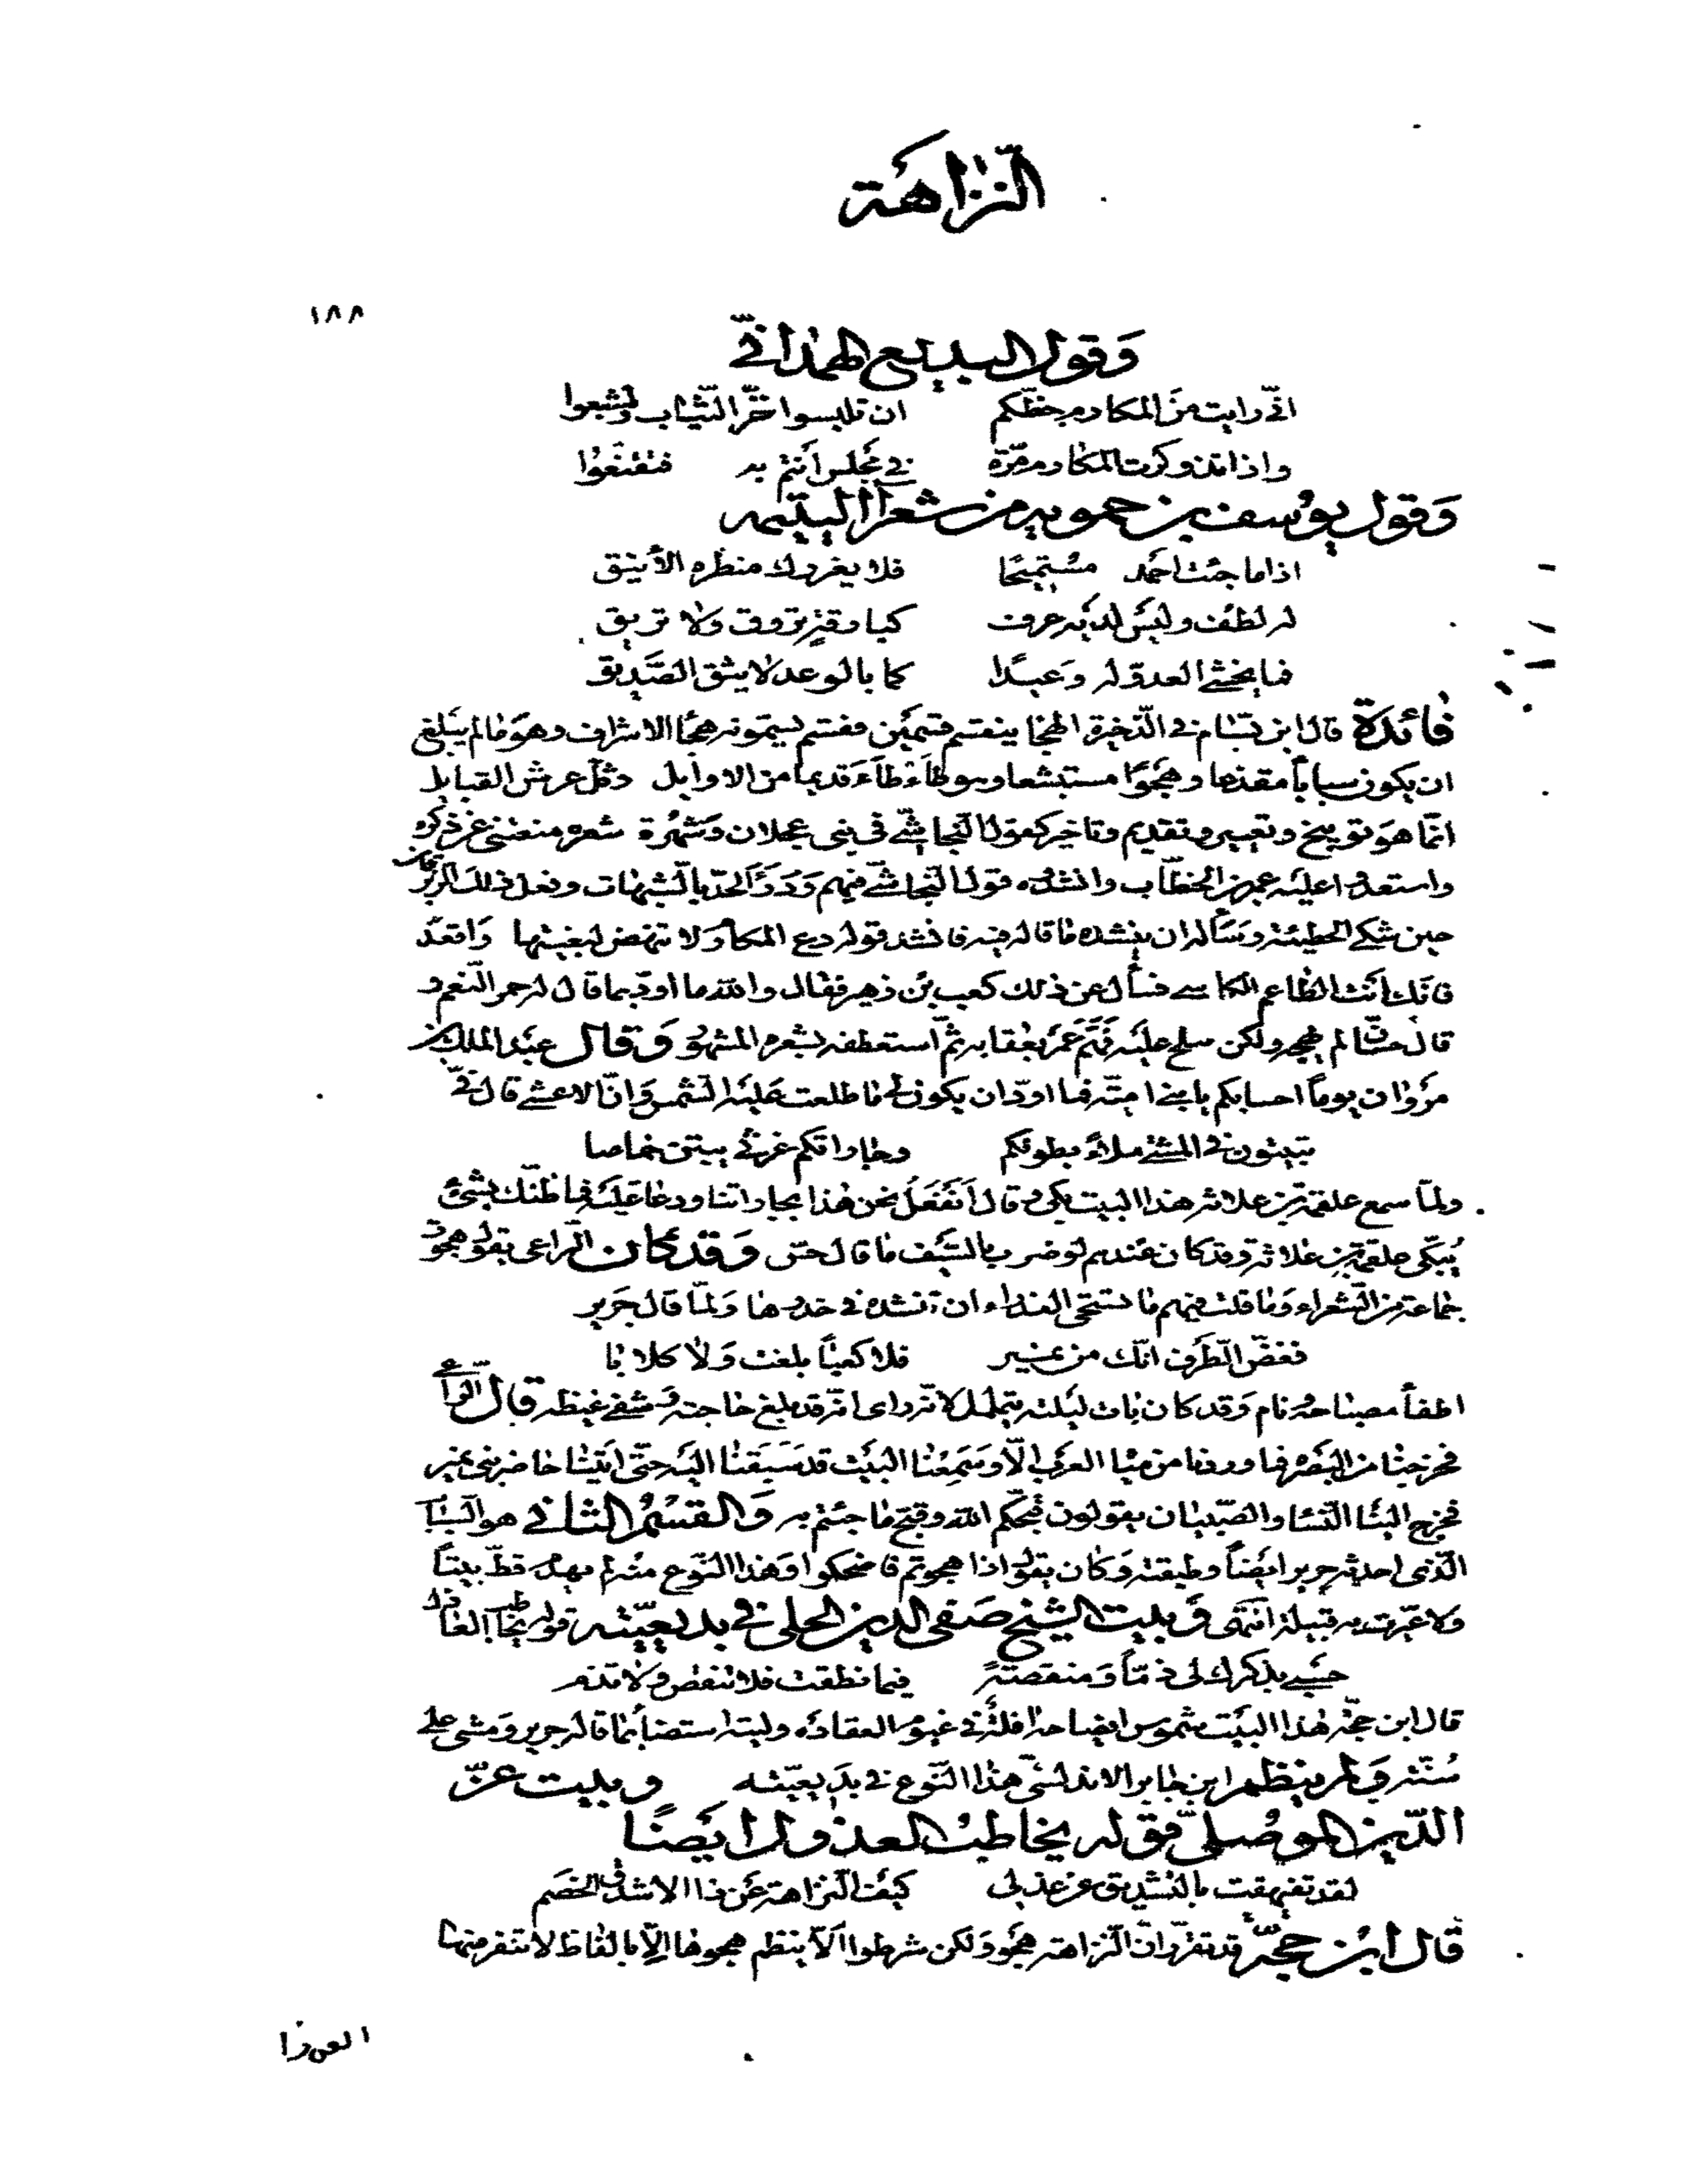 النزاهة
١٨٨
وقول البديع الهمذاني
انّي رايت من المكارم حظّكم ان تلبسوا خزّ الثّياب وتشبعوا
واذا تذوكرت المكارم مرّة في مجلس أنتم به فتقنّعوا
وقول يوسف بن حمويه من شعرآء اليتيمه
اذا ما جئت احمد مستميحًا فلا يغررك منظره الأنيق
له لطف وليس لديه عرف كبارقةٍ تروق ولا تريق
فما يخشى العدوّ له وعيدًا كما بالوعد لا يثق الصّديق
فائدة قال ابن بسّام في الذّخيرة الهجا ينقسم قسمين فقسم يسمّونه هجا الاشراف وهو ما لم يبلغ
ان يكون سبابًا مقذعا وهجوًا مستبشعا وهو طأطأ قديما من الاوايل وثلّ عرش القبايل
انّما هو توبيخ وتعيير وتقديم وتاخير كقول النّجاشيّ في بني عجلان وشهرة شعره منعتني عن ذكره
واستعدوا عليه عمر بن الخطّاب وانشدوه قول النّجاشيّ فيهم ودرَأ الحدّ بالشّبهات وفعل ذلك الزّبرقان
حين شكى الحطيئة وسأله ان ينشده ما قاله فيه فانشد قوله دع المكارم لا تنهض لبغيتها واقعد
فانّك انت الطّاعم الكاسي فسأل عن ذلك كعب بن زهير فقال والله ما اودّ بما قال له حمر النّعم و
قال حسّان لم يهجه ولكن سلح عليه فهمّ عمر بعقابه ثمّ استعطفه بشعره المشهور وقال عبد الملك بن
مروان يوماً احسابكم يا بني اميّة فما اودّ ان يكون لي ما طلعت عليه الشّمس وانّ الاعشى قال فيّ
تبيتون في المشتى ملاءً بطونكم وجاراتكم غرثى يبتن خماصا
ولمّا سمع علقمة بن علاثه هذا البيت بكى وقال أنفعلُ نحن هذا بجاراتنا ودعا عليه فما ظنّك بشئ
يُبكّي علقمة بن علاثة وقد كان عندهم لو ضرب بالسّيف ما قال حسّ وقد كان الرّاعي يقول هجوت
جماعة من الشّعراء وما قلت فيهم ما تستحي العذراء ان تنشده في خدرها ولمّا قال جرير
فغضّ الطّرف انّك من نمير فلا كعبًا بلغت ولا كلابا
اطفأ مصباحه ونام وقد كان بات ليلته يتململ لانّه راى انّه قد بلغ حاجته وشفى غيظه قال الرّاعي
فخرجنا من البصرة فما وردنا من مياه العرب الّا وسمعنا البيت قد سبقنا اليه حتّى اتينا حاضر بني نمير
فخرج الينا النّسا والصّبيان يقولون قبحكم الله وقبح ما جئتم به والقسم الثاني هو السّباب
الّذي احدثه جرير ايضًا وطبقته وكان يقول اذا هجوتم فاضحكوا وهذا النّوع منه لم يهدم قطّ بيتًا
ولا عيّرت به قبيلة انتهى وبيت الشيخ صفي الدين الحلي في بديعيّته قوله يخاطب العاذل
حسبي بذكرك لي ذمّا ومنقصةً فيما نطقت فلا تنقص ولا تذم
قال ابن حجّه هذا البيت شموس ايضاحه افلة في غيوم العقاده وليته استضأ بما قاله جرير ومشى على
سُنّته ولم ينظم ابن جابر الاندلسيّ هذا النّوع في بديعيّته وبيت عزّ
الدّين الموصليّ قوله يخاطب العذول ايضًا
لقد تفيهقت بالتشديق عن عذلي كيف النّزاهة عن ذا الاشدق الخصم
قال ابن حجّة قد تقرّر انّ النّزاهة هجو ولكن شرطوا ألاّ ينظم هجوها الاّ بالفاظ لا تنفر منها
العذرا